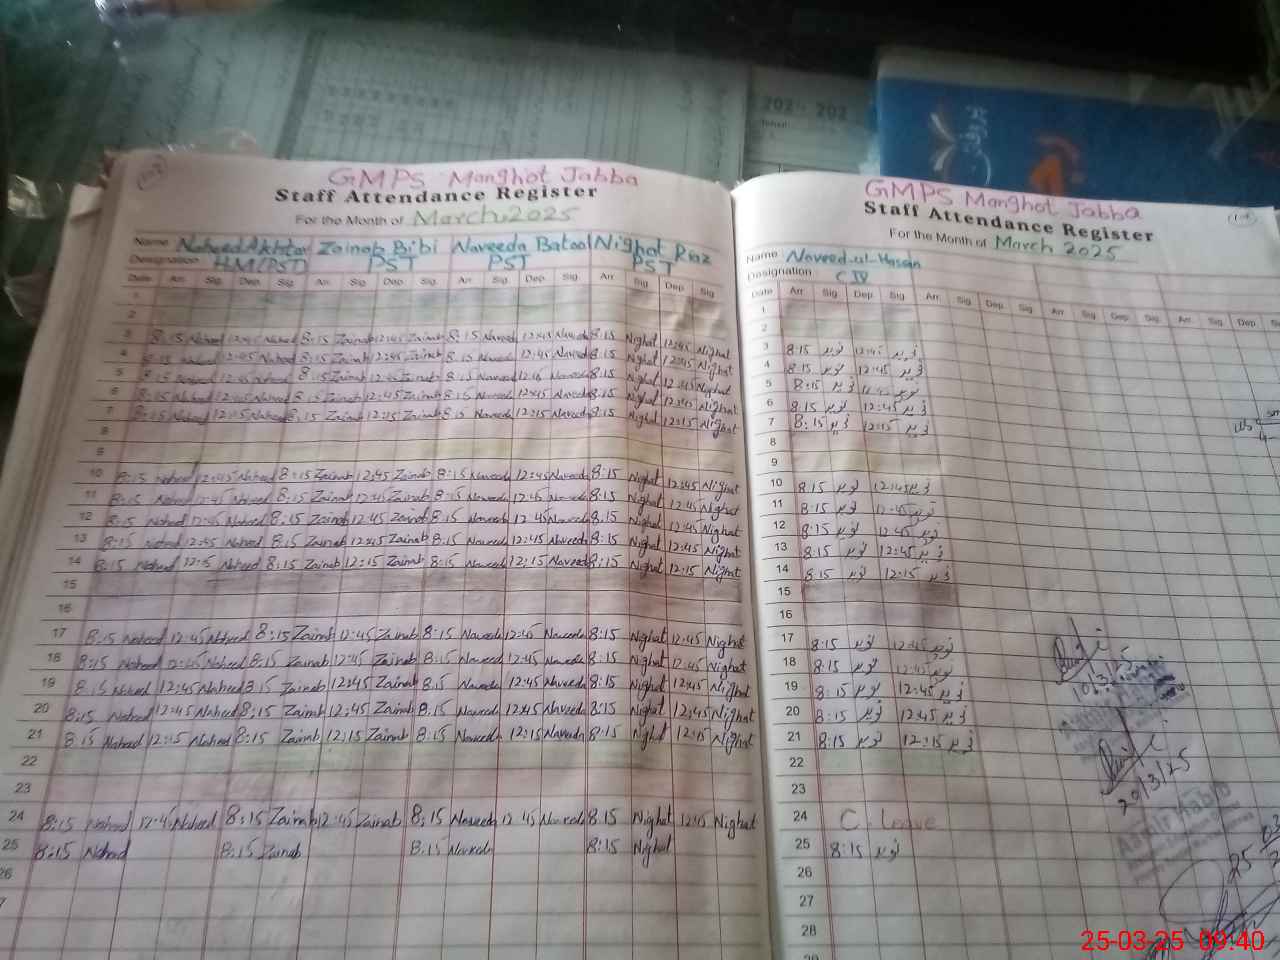 GMPS Manghot Jabba
Staff Attendance Register
For the Month of March, 2025
Name Naheed Akhtar Zainab Bibi Naveeda Batool Nighat Riaz
Designation H.M(PST) PST PST PST
Date Arr. Sig. Dep. Sig. Arr. Sig. Dep. Sig. Arr. Sig. Dep. Sig. Arr. Sig. Dep. Sig.
1
2
3 8:15 Naheed 12:45 Naheed 8:15 Zainab 12:45 Zainab 8:15 Naveeda 12:45 Naveeda 8:15 Nighat 12:45 Nighat
4 8:15 Naheed 12:45 Naheed 8:15 Zainab 12:45 Zainab 8:15 Naveeda 12:45 Naveeda 8:15 Nighat 12:45 Nighat
5 8:15 Naheed 12:45 Naheed 8:15 Zainab 12:45 Zainab 8:15 Naveeda 12:45 Naveeda 8:15 Nighat 12:45 Nighat
6 8:15 Naheed 12:45 Naheed 8:15 Zainab 12:45 Zainab 8:15 Naveeda 12:45 Naveeda 8:15 Nighat 12:45 Nighat
7 8:15 Naheed 12:15 Naheed 8:15 Zainab 12:15 Zainab 8:15 Naveeda 12:15 Naveeda 8:15 Nighat 12:15 Nighat
8
9
10 8:15 Naheed 12:45 Naheed 8:15 Zainab 12:45 Zainab 8:15 Naveeda 12:45 Naveeda 8:15 Nighat 12:45 Nighat
11 8:15 Naheed 12:45 Naheed 8:15 Zainab 12:45 Zainab 8:15 Naveeda 12:45 Naveeda 8:15 Nighat 12:45 Nighat
12 8:15 Naheed 12:45 Naheed 8:15 Zainab 12:45 Zainab 8:15 Naveeda 12:45 Naveeda 8:15 Nighat 12:45 Nighat
13 8:15 Naheed 12:45 Naheed 8:15 Zainab 12:45 Zainab 8:15 Naveeda 12:45 Naveeda 8:15 Nighat 12:45 Nighat
14 8:15 Naheed 12:15 Naheed 8:15 Zainab 12:15 Zainab 8:15 Naveeda 12:15 Naveeda 8:15 Nighat 12:15 Nighat
15
16
17 8:15 Naheed 12:45 Naheed 8:15 Zainab 12:45 Zainab 8:15 Naveeda 12:45 Naveeda 8:15 Nighat 12:45 Nighat
18 8:15 Naheed 12:45 Naheed 8:15 Zainab 12:45 Zainab 8:15 Naveeda 12:45 Naveeda 8:15 Nighat 12:45 Nighat
19 8:15 Naheed 12:45 Naheed 8:15 Zainab 12:45 Zainab 8:15 Naveeda 12:45 Naveeda 8:15 Nighat 12:45 Nighat
20 8:15 Naheed 12:45 Naheed 8:15 Zainab 12:45 Zainab 8:15 Naveeda 12:45 Naveeda 8:15 Nighat 12:45 Nighat
21 8:15 Naheed 12:15 Naheed 8:15 Zainab 12:15 Zainab 8:15 Naveeda 12:15 Naveeda 8:15 Nighat 12:15 Nighat
22
23
24 8:15 Naheed 12:45 Naheed 8:15 Zainab 12:45 Zainab 8:15 Naveeda 12:45 Naveeda 8:15 Nighat 12:45 Nighat
25 8:15 Naheed 8:15 Zainab 8:15 Naveeda 8:15 Nighat
26
GMPS Manghot Jabba
Staff Attendance Register
For the Month of March 2025
Name Naveed-ul-Hassan
Designation C IV
Date Arr. Sig. Dep. Sig. Arr. Sig. Dep. Sig. Arr. Sig. Dep. Sig. Arr. Sig. Dep.
1
2
3 8:15 نوید 12:45 نوید
4 8:15 نوید 12:45 نوید
5 8:15 نوید 12:45 نوید
6 8:15 نوید 12:45 نوید
7 8:15 نوید 12:15 نوید
8
9
10 8:15 نوید 12:45 نوید
11 8:15 نوید 12:45 نوید
12 8:15 نوید 12:45 نوید
13 8:15 نوید 12:45 نوید
14 8:15 نوید 12:15 نوید
15
16
17 8:15 نوید 12:45 نوید
18 8:15 نوید 12:45 نوید
19 8:15 نوید 12:45 نوید
20 8:15 نوید 12:45 نوید
21 8:15 نوید 12:15 نوید
22
20/3/25
23
24 C. Leave
25 8:15 نوید
26
27
28
25-03-25 09:40